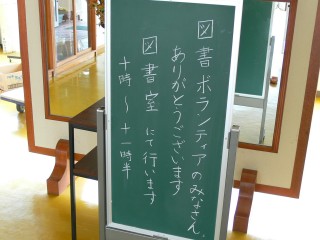 図書ボランティアのみなさん。
ありがとうございます
図書室にて行います
十時～十一時半